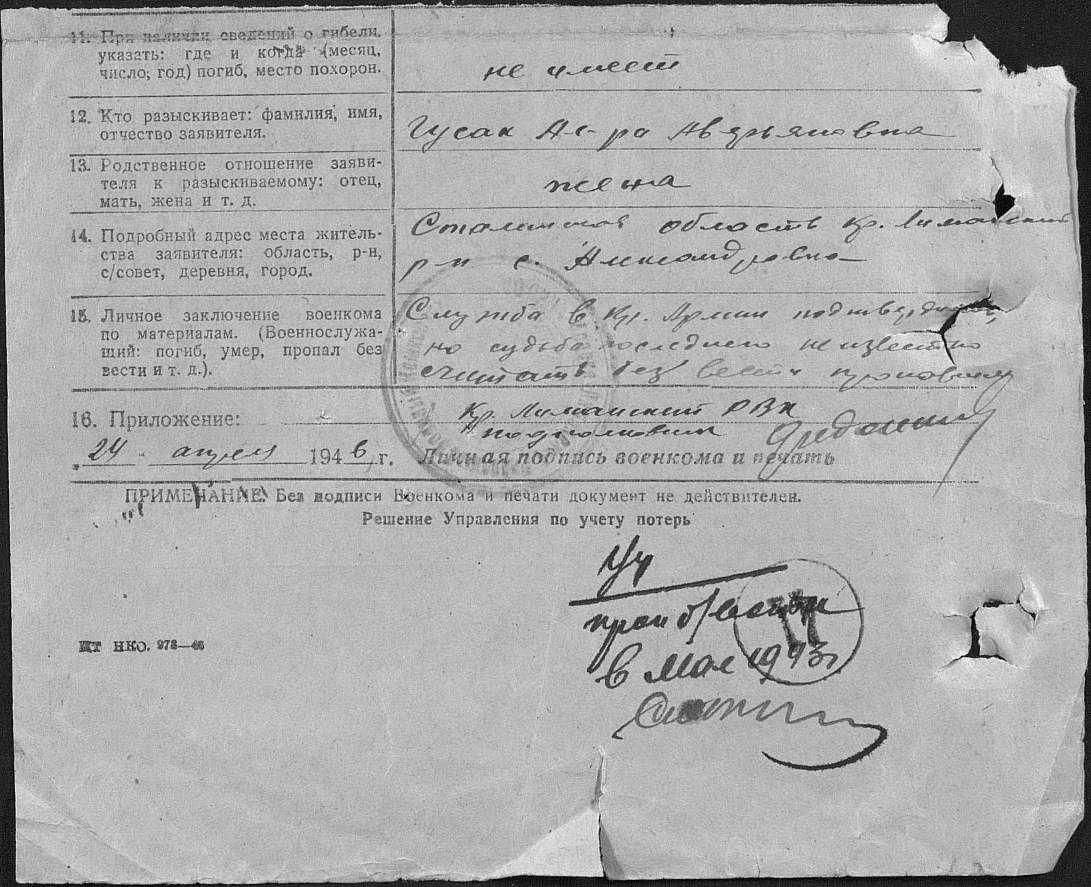 11. При наличии сведений о гибели,
указать: где и когда (месяц,
число, год) погиб, место похорон.
не имеет
12. Кто разыскивает: фамилия, имя,
отчество заявителя.
Гусак Ал-ра Аверьяновна
13. Родственное отношение заяви-
теля к разыскиваемому: отец,
мать, жена и т. д.
жена
14. Подробный адрес места житель-
ства заявителя: область, р-н,
с/совет, деревня, город.
Сталинская область Кр. Лиманский
р-н с. Александровка
15. Личное заключение военкома
по материалам. (Военнослужа-
щий: погиб, умер, пропал без
вести и т. д.).
Служба в Кр. Армии
но судьба последнего неизвестна
считать без вести пропавшим
16. Приложение:
Кр. Лиманский РВК
подполковник
24 апреля 1946 г. Личная подпись военкома и печать
ПРИМЕЧАНИЕ: Без подписи Военкома и печати документ не действителен.
Решение Управления по учету потерь
проп б/вести
в мае 1943г
ШТ НКО. 978—46